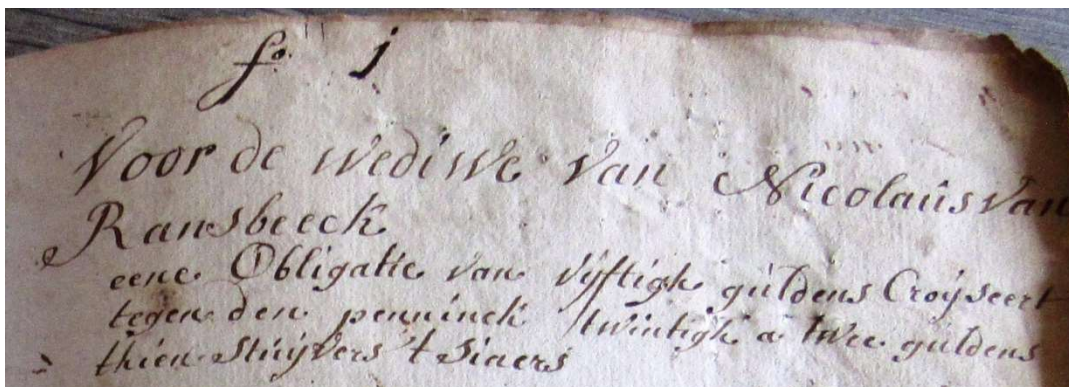 fo. j
Voor de wediwe van Nicolaus van
Ransbeeck
eene Obligatie van vijftigh guldens Croijseert
tegen den penninck twintigh a twee guldens
thien stuijvers 't siaers